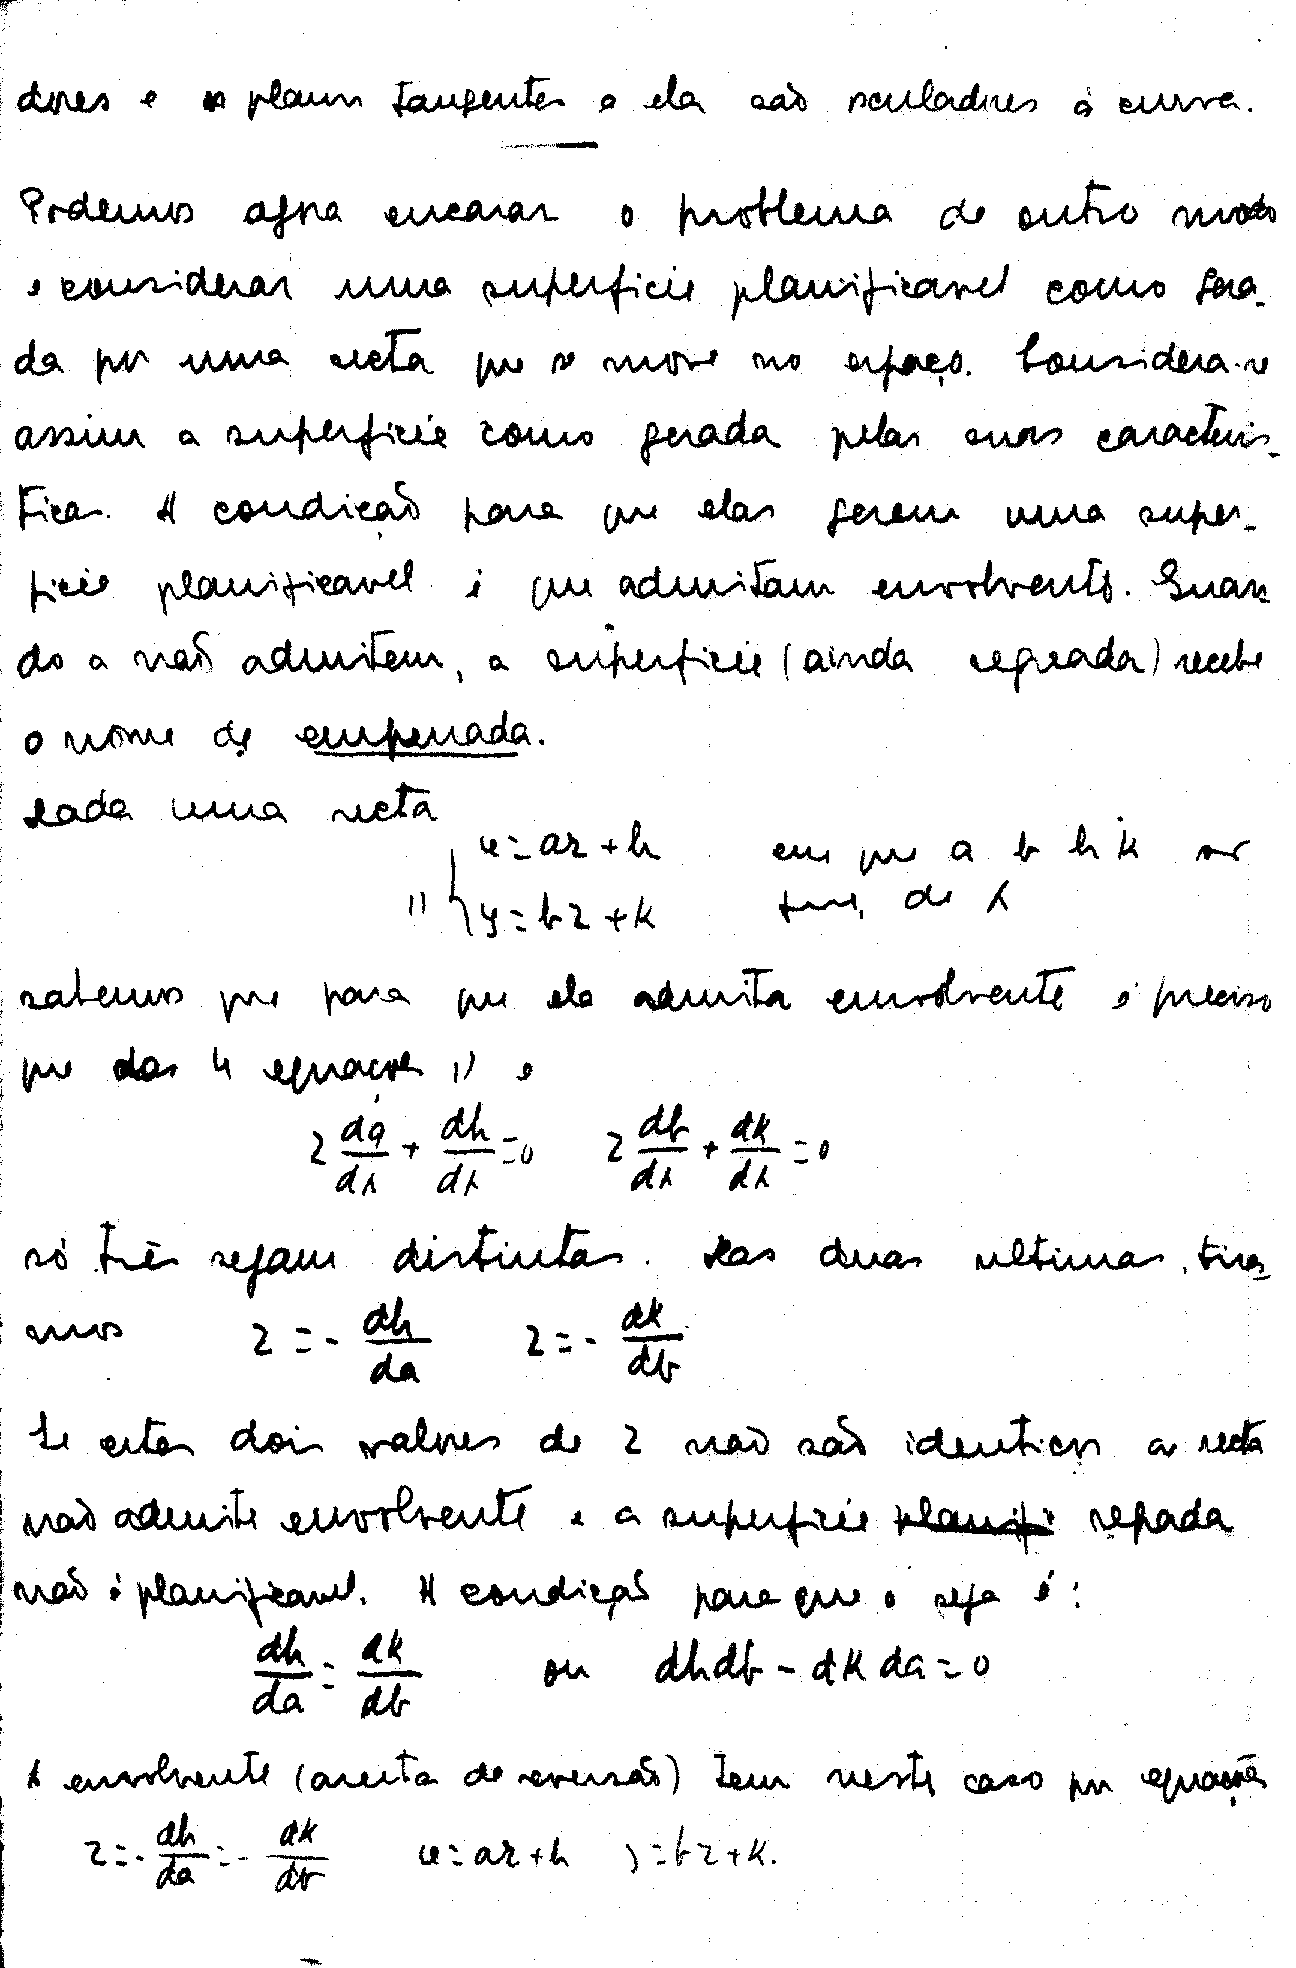 dores e os planos tangentes a ela são osculadores à curva.
Podemos agora encarar o problema de outro modo
e considerar uma superficie planificavel como gera-
da por uma recta que se move no espaço. Considera-se
assim a superficie como gerada pelas suas caracteris-
ticas. A condição para que elas gerem uma super-
ficie planificavel é que admitam envolvente. Quan
do a não admitem, a superficie (ainda regrada) recebe
o nome de empenada.
Dada uma recta
1) { x = az + h em que a b h k são
y = bz + k func. de λ
sabemos que para que ela admita envolvente é preciso
que das 4 equações 1) e
z da/dλ + dh/dλ = 0 z db/dλ + dk/dλ = 0
só três sejam distintas. Das duas ultimas, tira-
mos z = - dh/da z = - dk/db
Se estes dois valores de z não são identicos a recta
não admite envolvente e a superficie planifi regrada
não é planificavel. A condição para que o seja é:
dh/da = dk/db ou dhdb - dk da = 0
A envolvente (aresta de reversão) tem neste caso por equações
z = - dh/da = - dk/db x = az + h y = bz + k.